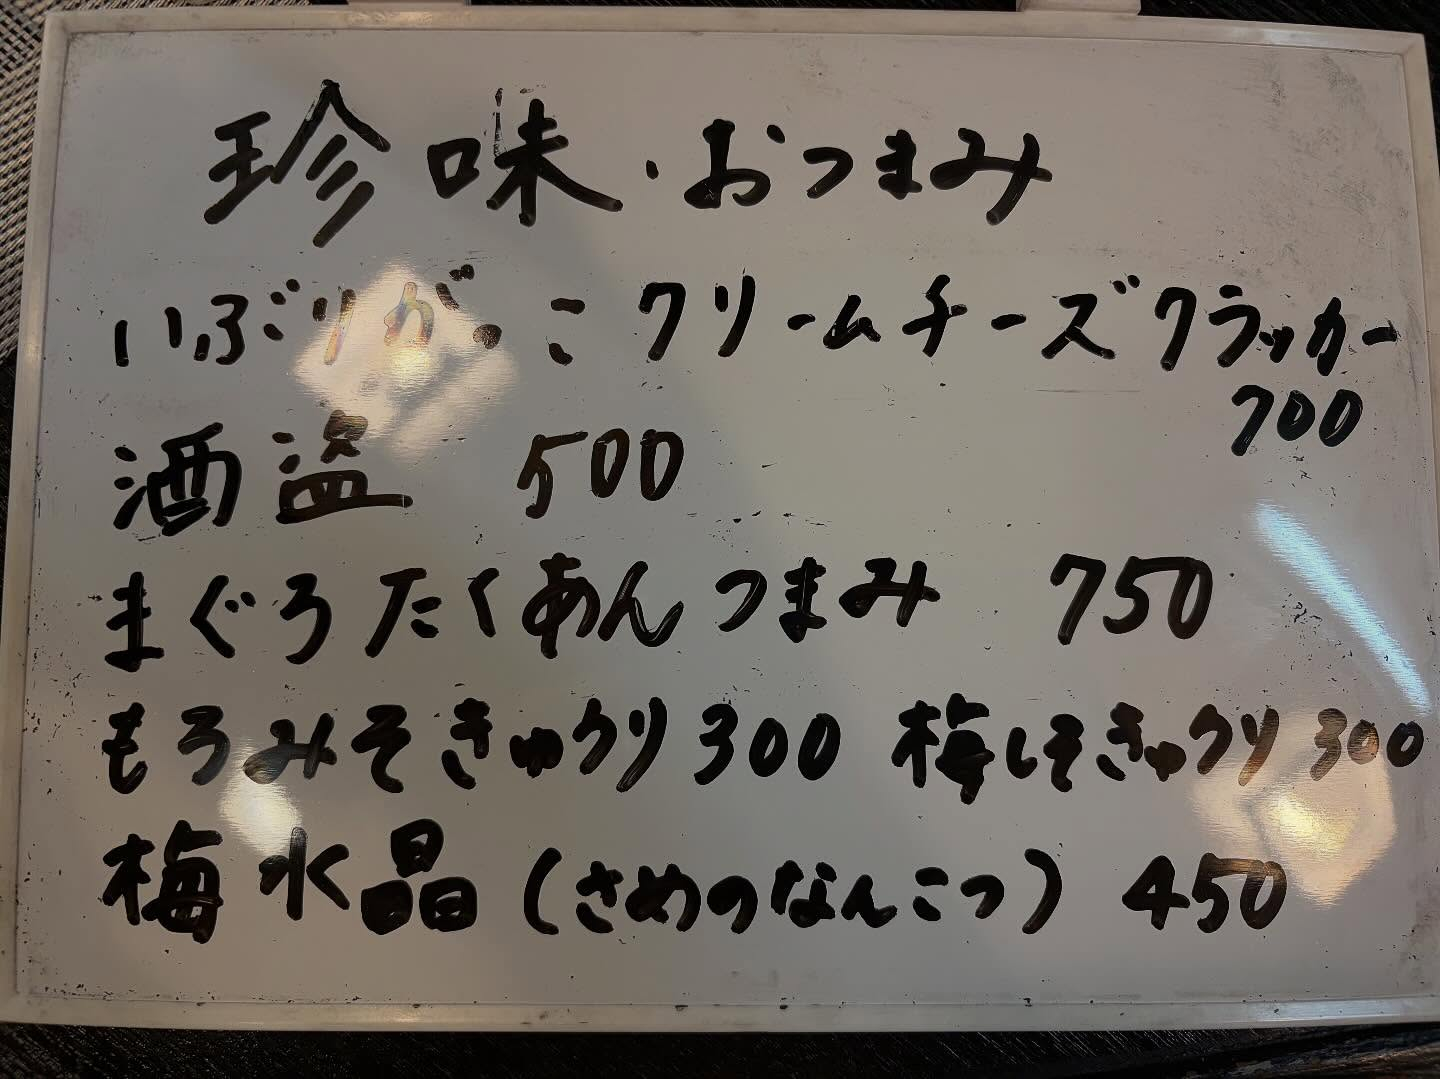 珍味・おつまみ
いぶりがっこクリームチーズクラッカー
700
酒盗 500
まぐろたくあんつまみ 750
もろみそきゅうり300 梅しそきゅうり300
梅水晶(さめのなんこつ) 450